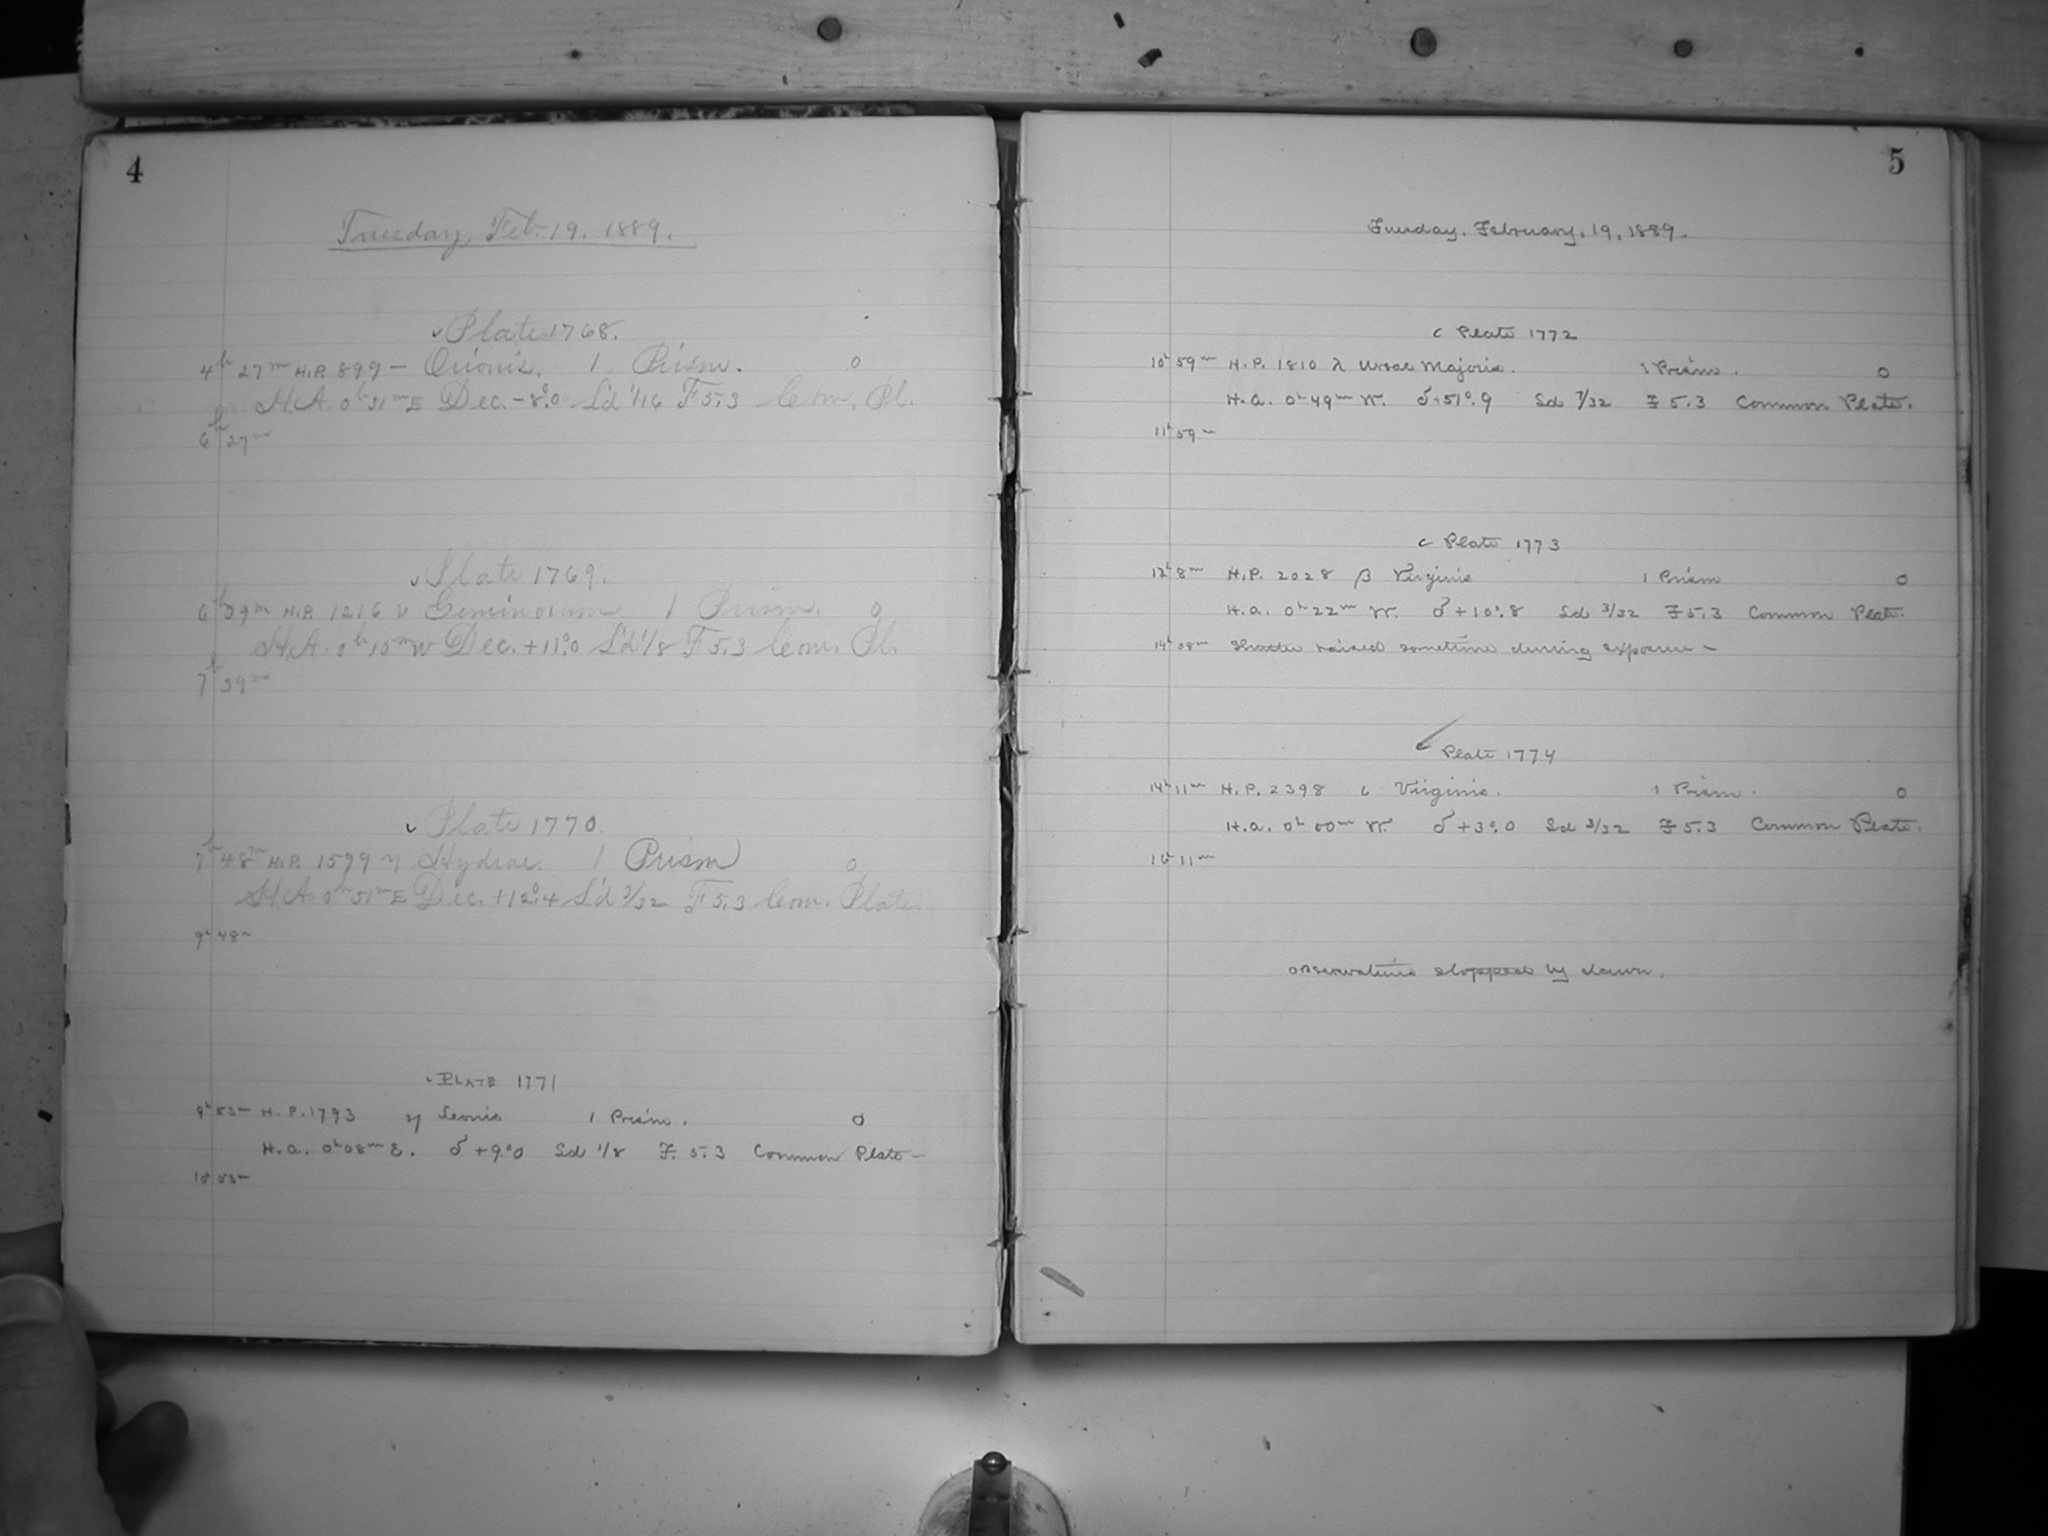 4
Tuesday, Feb. 19. 1889.
Plate 1768.
4h 27m H.P. 899 — Orionis. 1 Prism. 0
H.A. 0h 31m E Dec. -8°.0 S'd 1/16 F 5.3 Com. Pl.
6h 27m
Plate 1769.
6h 39m H.P. 1216 ν Geminorum 1 Prism. 0
H.A. 0h 15m W Dec. +11°.0 S'd 1/8 F 5.3 Com. Pl.
7h 39m
Plate 1770.
7h 48m H.P. 1599 η Hydrae. 1 Prism 0
H.A. 0h 51m E Dec. +12°.4 S'd 3/32 F 5.3 Com. Plate
9h 48m
PLATE 1771
9h 53m H.P. 1793 η Leonis 1 Prism. 0
H.A. 0h 08m E. δ +9°.0 Sd 1/8 F. 5.3 Common Plate—
10h 53m
5
Tuesday. February. 19. 1889.
c Plate 1772
10h 59m H.P. 1810 λ Ursae Majoris. 1 Prism. 0
H.A. 0h 49m W. δ +51°.9 Sd 7/32 F 5.3 Common Plate.
11h 59m
c Plate 1773
12h 8m H.P. 2028 β Virginis 1 Prism 0
H.A. 0h 22m W. δ +10°.8 Sd 3/32 F 5.3 Common Plate.
14h 08m Shutter raised sometime during exposure—
c Plate 1774
14h 11m H.P. 2398 ι Virginis. 1 Prism. 0
H.A. 0h 00m W. δ +3°.0 Sd 3/32 F 5.3 Common Plate.
16h 11m
Observations stopped by dawn.